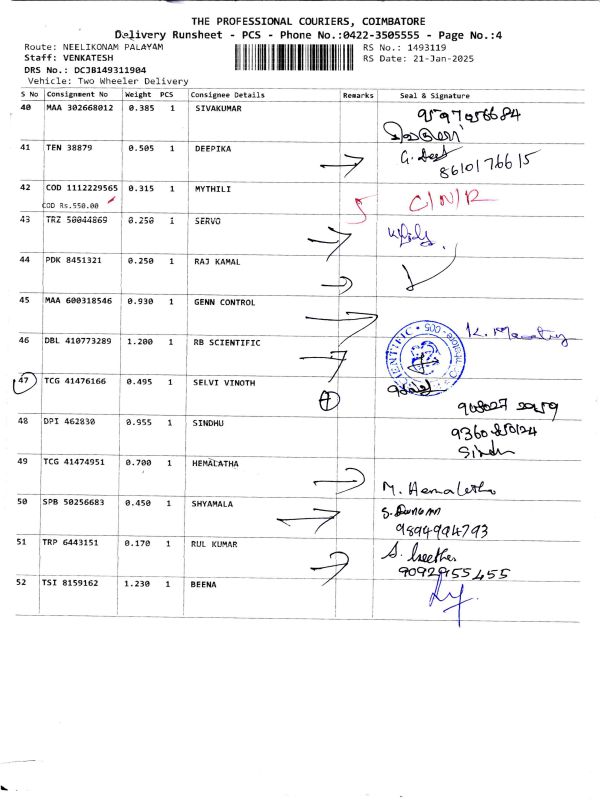 THE PROFESSIONAL COURIERS, COIMBATORE
Delivery Runsheet - PCS - Phone No.:0422-3505555 - Page No.:4
Route: NEELIKONAM PALAYAM RS No.: 1493119
Staff: VENKATESH RS Date: 21-Jan-2025
DRS No.: DCJB149311904
Vehicle: Two Wheeler Delivery
S No Consignment No Weight PCS Consignee Details Remarks Seal & Signature
40 MAA 302668012 0.385 1 SIVAKUMAR
41 TEN 38879 0.505 1 DEEPIKA
8610176615
42 COD 1112229565 0.315 1 MYTHILI C/N/R
COD Rs.550.00
43 TRZ 50044869 0.250 1 SERVO
44 PDK 8451321 0.250 1 RAJ KAMAL
45 MAA 600318546 0.930 1 GENN CONTROL
46 DBL 410773289 1.200 1 RB SCIENTIFIC
47 TCG 41476166 0.495 1 SELVI VINOTH
48 DPI 462830 0.955 1 SINDHU
Sindhu
49 TCG 41474951 0.700 1 HEMALATHA
M. Hemalatha
50 SPB 50256683 0.450 1 SHYAMALA
9894994793
51 TRP 6443151 0.170 1 RUL KUMAR
52 TSI 8159162 1.230 1 BEENA